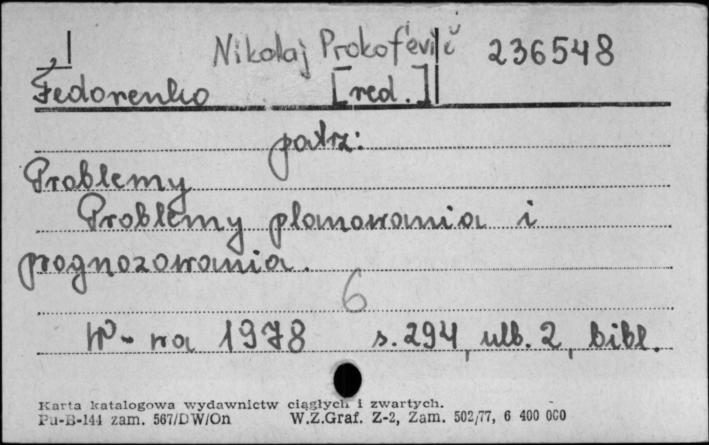 Nikolaj Prokof'evič 236548
Fedorenko [red.]
patrz:
Problemy
Problemy planowania i
prognozowania.
6
W-wa 1978 s. 294, ulb. 2, bibl.
Karta katalogowa wydawnictw ciągłych i zwartych.
Pu-B-144 zam. 567/DW/On W.Z.Graf. Z-2, Zam. 502/77, 6 400 000